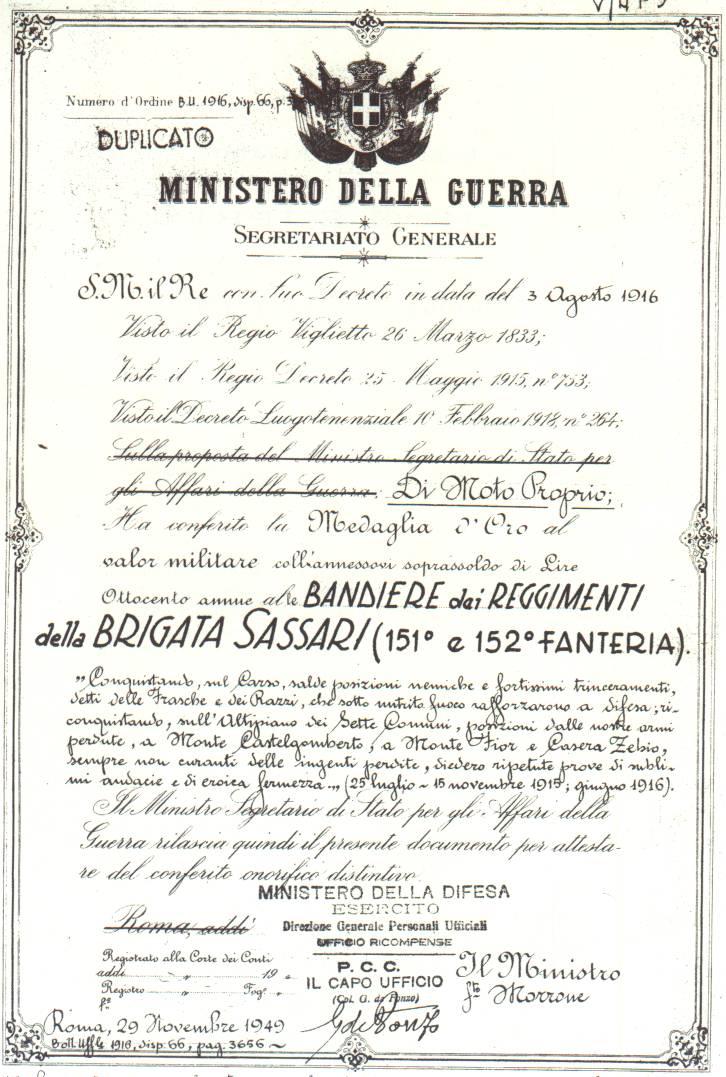 Numero d'Ordine B.U. 1916, disp. 66, p. 3
DUPLICATO
MINISTERO DELLA GUERRA
SEGRETARIATO GENERALE
S. M. il Re con Suo Decreto in data del 3 Agosto 1916
Visto il Regio Viglietto 26 Marzo 1833;
Visto il Regio Decreto 25 Maggio 1915, n° 753;
Visto il Decreto Luogotenenziale 10 Febbraio 1918, n° 264;
Sulla proposta del Ministro Segretario di Stato per
gli Affari della Guerra. Di Moto Proprio;
Ha conferito la Medaglia d'Oro al
valor militare coll'annessovi soprassoldo di Lire
Ottocento annue alle BANDIERE dei REGGIMENTI
della BRIGATA SASSARI (151° e 152° FANTERIA).
"Conquistando, sul Carso, salde posizioni nemiche e fortissimi trinceramenti,
detti delle Frasche e dei Razzi, che sotto nutrito fuoco rafforzarono a difesa; ri-
conquistando, sull'Altipiano dei Sette Comuni, posizioni dalle nostre armi
perdute, a Monte Castelgomberto, a Monte Fior e Casera Zebio,
sempre non curanti delle ingenti perdite, diedero ripetute prove di subli-
mi audacie e di eroica fermezza." (25 luglio ~ 15 novembre 1915; giugno 1916).
Il Ministro Segretario di Stato per gli Affari della
Guerra rilascia quindi il presente documento per attesta-
re del conferito onorifico distintivo.
MINISTERO DELLA DIFESA
ESERCITO
Roma, addì
Direzione Generale Personali Ufficiali
UFFICIO RICOMPENSE
Registrato alla Corte dei Conti
addì " 19 "
Registro " Fog° "
f°
P. C. C.
IL CAPO UFFICIO
(Col. G. de Fonzo)
G de Fonzo
Il Ministro
f.to Morrone
Roma, 29 Novembre 1949
Boll. Uffle 1916, disp: 66, pag: 3656 ~